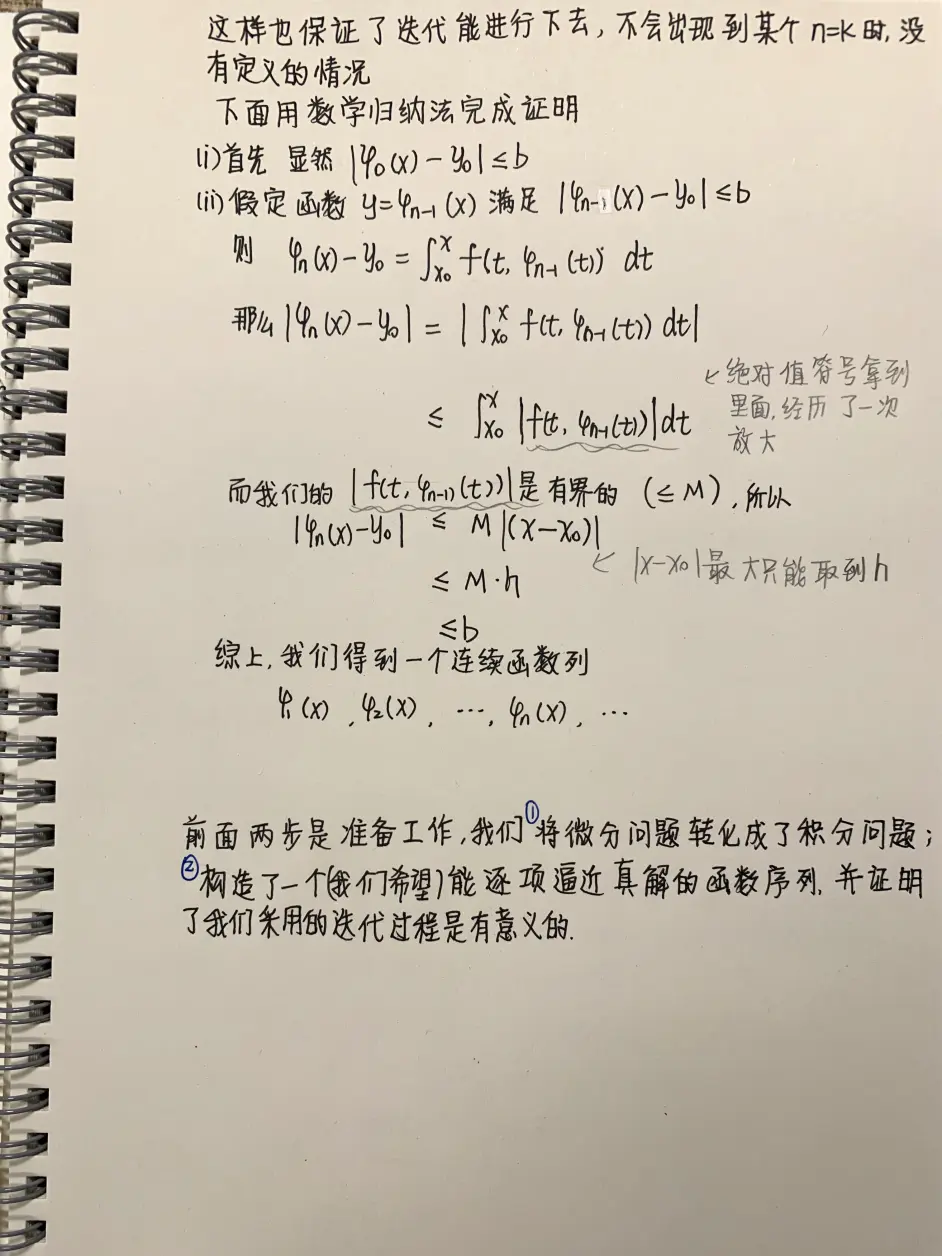 这样也保证了迭代能进行下去，不会出现到某个 n=k 时，没
有定义的情况
下面用数学归纳法完成证明
(i) 首先 显然 |φ₀(x) - y₀| ≤ b
(ii) 假定函数 y=φₙ₋₁(x) 满足 |φₙ₋₁(x) - y₀| ≤ b
则 φₙ(x) - y₀ = ∫ₓ₀ˣ f(t, φₙ₋₁(t)) dt
那么 |φₙ(x) - y₀| = |∫ₓ₀ˣ f(t, φₙ₋₁(t)) dt|
≤ ∫ₓ₀ˣ |f(t, φₙ₋₁(t))| dt
↙ 绝对值符号拿到
里面，经历了一次
放大
而我们的 |f(t, φₙ₋₁(t))| 是有界的 (≤ M)，所以
|φₙ(x) - y₀| ≤ M |(x - x₀)|
↙ |x-x₀| 最大只能取到 h
≤ M·h
≤ b
综上，我们得到一个连续函数列
φ₁(x), φ₂(x), ⋯, φₙ(x), ⋯
前面两步是准备工作，我们①将微分问题转化成了积分问题；
②构造了一个(我们希望)能逐项逼近真解的函数序列，并证明
了我们采用的迭代过程是有意义的.